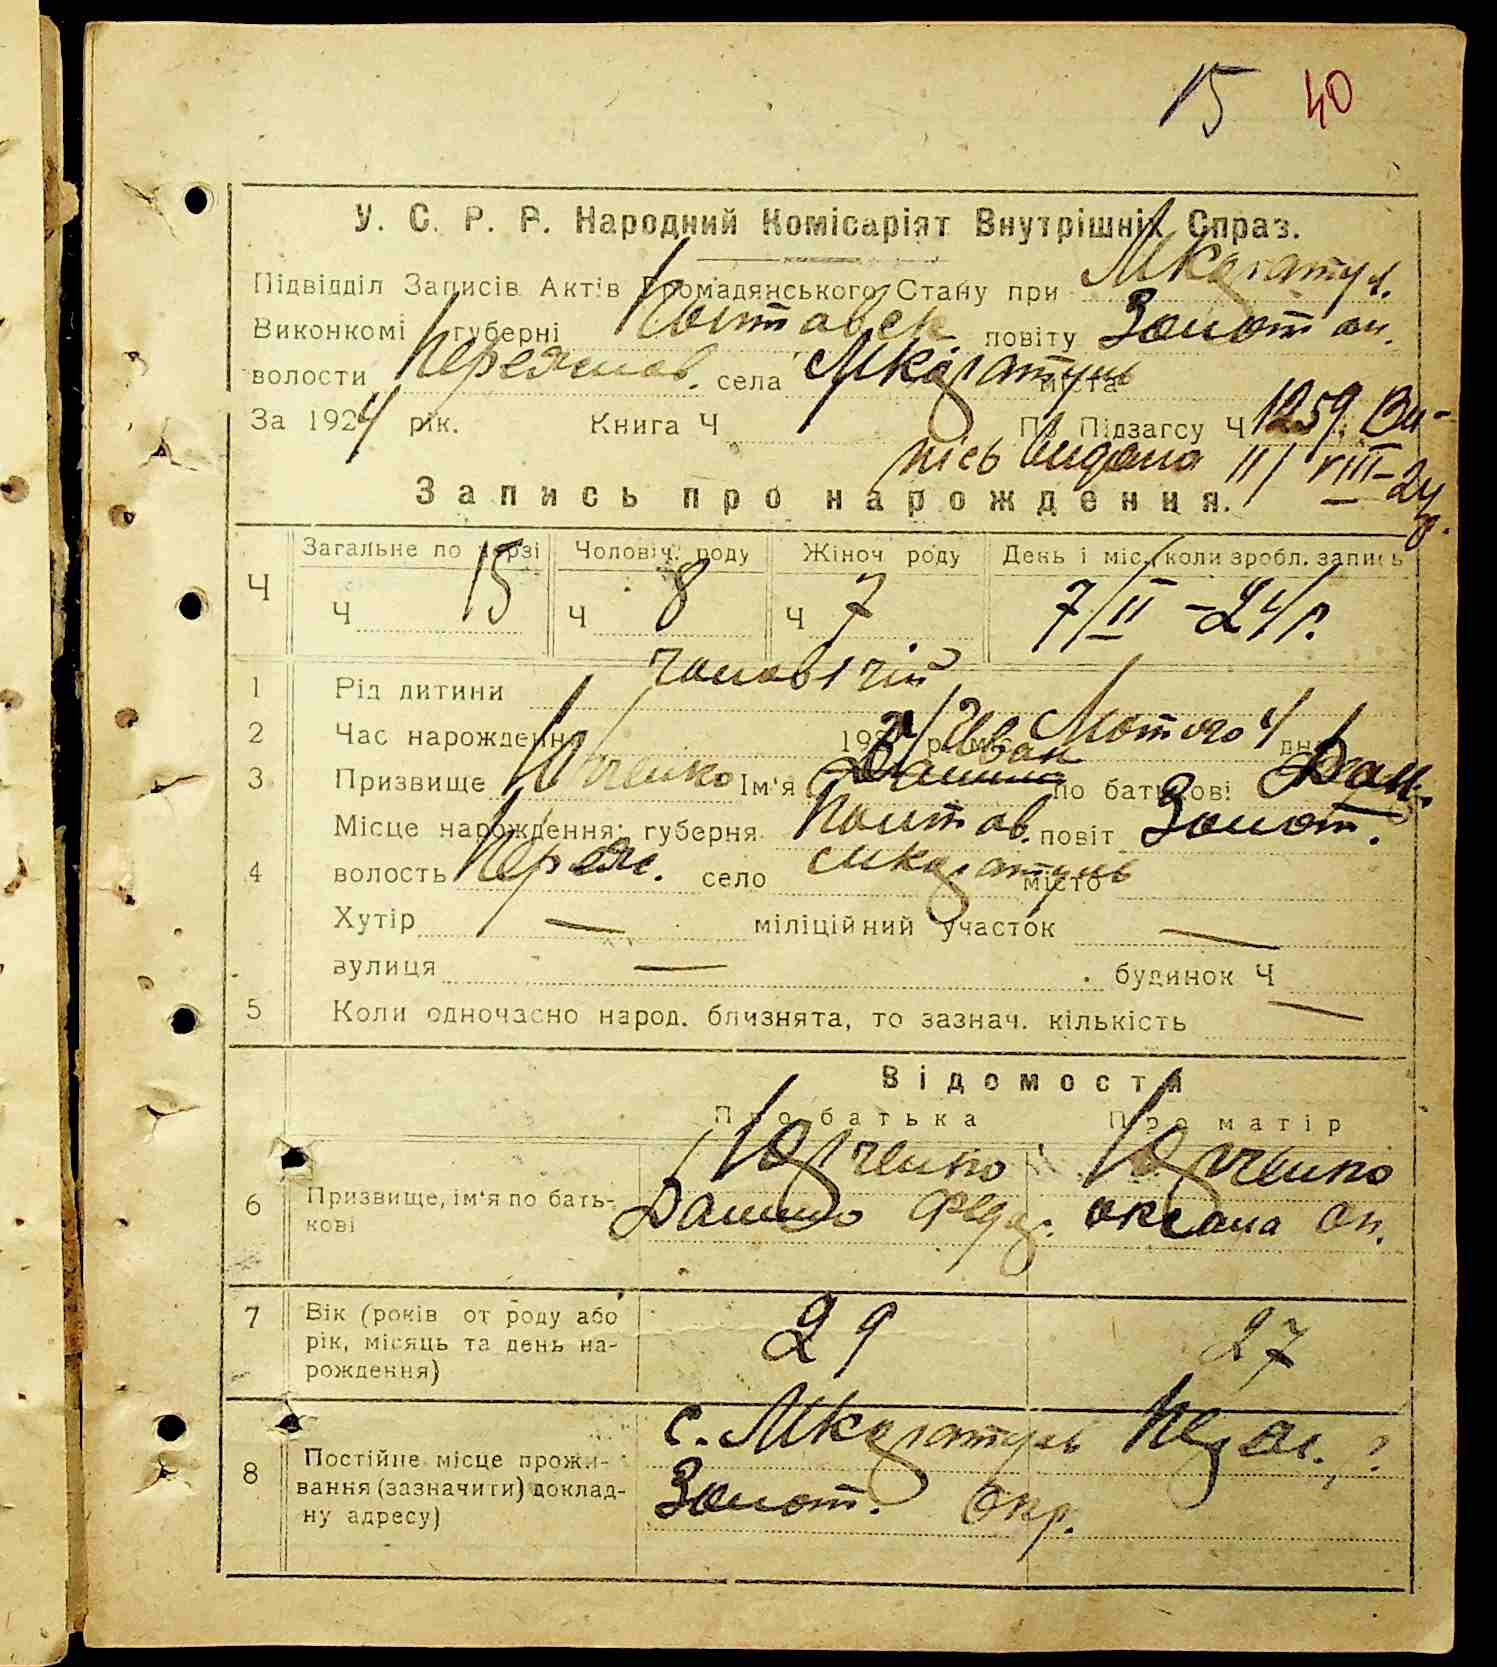 15 40
У. С. Р. Р. Народний Комісаріят Внутрішніх Справ.
Підвідділ Записів Актів Громадянського Стану при
Виконкомі губерні Полтавск повіту Золотон.
волости Переяслав. села міста
За 1924 рік. Книга Ч По Підзагсу Ч 1259. Ви-
пісь видана 11/VIII-24
р.
Запись про народження.
Загальне по черзі Чоловіч. роду Жіноч роду День і міс. коли зробл. запись
Ч Ч 15 Ч 8 Ч 7 7/II-24 р.
1 Рід дитини чоловічій
2 Час народження 1924 р. Лютого 4 дня
Иван
3 Призвище Юрченко Ім'я Данило по батькові Дан.
Місце народження: губерня Полтав. повіт Золот.
4 волость Переяс. село місто
Хутір — міліційний участок —
вулиця — будинок Ч —
5 Коли одночасно народ. близнята, то зазнач. кількість —
Відомости
Про батька Про матір
Юрченко Юрченко
6 Призвище, ім'я по бать- Данило Федор. Оксана
кові
7 Вік (років от роду або 29 27
рік, місяць та день на-
рождення)
с.
8 Постійне місце прожи-
вання (зазначити) доклад- Золот. Окр.
ну адресу)